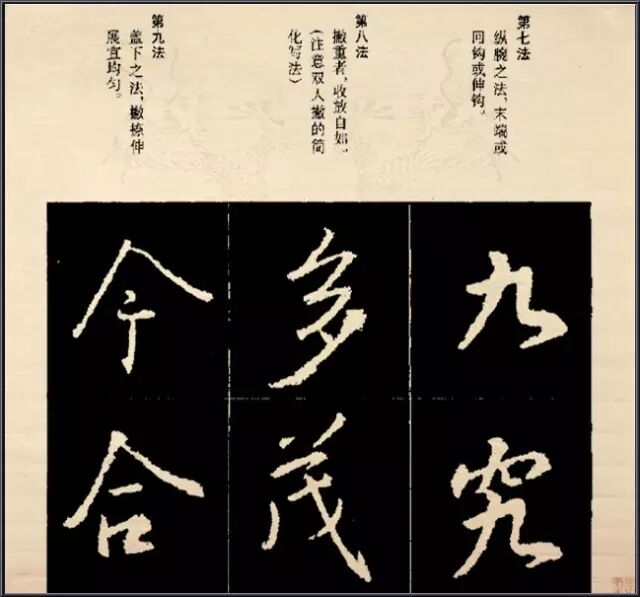 第七法
纵腕之法，末端或
回钩或伸钩。
第八法
撇重者，收放自如。
（注意双人撇的简
化写法）
第九法
盖下之法，撇捺伸
展宜均匀。
九
究
多
茂
今
合